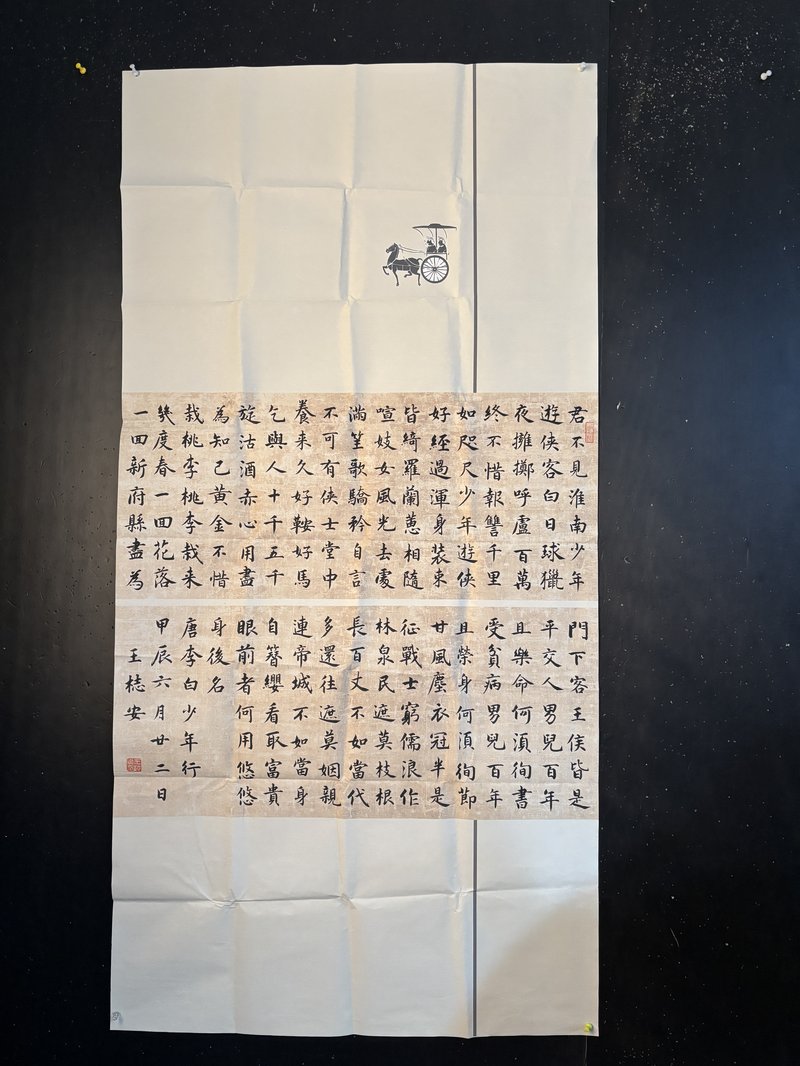 君不見淮南少年
遊俠客白日球獵
夜擁擲呼盧百萬
終不惜報讐千里
如咫尺少年遊俠
好經過渾身裝束
皆綺羅蘭蕙相隨
喧妓女風光去處
滿笙歌驕矜自言
不可有俠士堂中
養来久好鞍好馬
乞與人十千五千
旋沽酒赤心用盡
為知己黄金不惜
栽桃李桃李栽来
幾度春一回花落
一回新府縣盡為
門下客王侯皆是
平交人男兒百年
且樂命何須徇書
受貧病男兒百年
且榮身何須徇節
甘風塵衣冠半是
征戰士窮儒浪作
林泉民遮莫枝根
長百丈不如當代
多還往遮莫姻親
連帝城不如當身
自簪纓看取富貴
眼前者何用悠悠
身後名
唐李白少年行
甲辰六月廿二日
王梽安